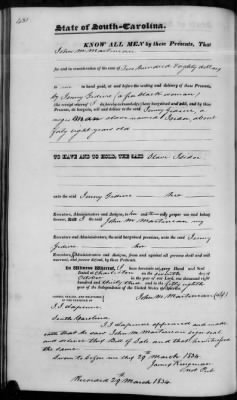 State of South-Carolina.
KNOW ALL MEN by these Presents, That
John M. Martineau
for and in consideration of the sum of Two hundred & eighty dollars
to me in hand paid, at and before the sealing and delivery of these Presents,
by Jenny (a free black woman)
(the receipt whereof I do hereby acknowledge) have bargained and sold, and by these
Presents, do bargain, sell and deliver to the said Jenny a
negro Man slave named Isidor about
forty eight years old
TO HAVE AND TO HOLD, THE SAID Slave Isidor
unto the said Jenny her
Executors, Administrators and Assigns, to and only proper use and behoof
forever. And I the said John M. Martineau my
Executors and Administrators, the said bargained premises, unto the said Jenny
her
Executors, Administrators and Assigns, from and against all persons shall and will
warrant, and forever defend, by these Presents.
In Witness Whereof, I have hereunto set my Hand and Seal
Dated at Charleston on the
day of October in the year of our Lord, one thousand eight
hundred and thirty three and in the fifty eighth
year of the Independence of the United States of America.
SIGNED, SEALED, AND DELIVERED
IN THE PRESENCE OF
John M. Martineau (LS)
South Carolina
appeared and made
oath that he saw John M. Martineau sign seal
and deliver this Bill of Sale and that he witnessed
the same.
Sworn to before me this 29th March 1834.
James Not Pub
Recorded 29th March 1834.